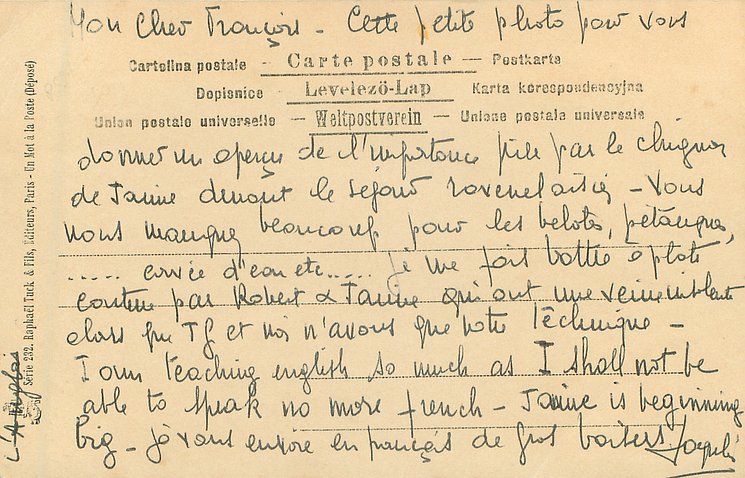 Mon cher François - Cette petite photo pour vous
Cartolina postale — Carte postale — Postkarte
Dopisnice — Levelező-Lap — Karta korespondencyjna
Union postale universelle — Weltpostverein — Unione postale universale
donner un aperçu de l'importance prise par le chignon
de Janine devant le séjour - Vous
nous manquez beaucoup pour les belotes, pétanques,
..... corvée d'eau etc..... je me fais battre à plate
couture par Robert & Janine qui ont une veine insolente
alors que et moi n'avons que notre technique -
I am teaching english so much as I shall not be
able to speak no more french - Janine is beginning
big - je vous envoie en français de gros baisers
L'Anglais
Série 232. Raphaël Tuck & Fils, Editeurs, Paris - Un Mot à la Poste (Déposé)